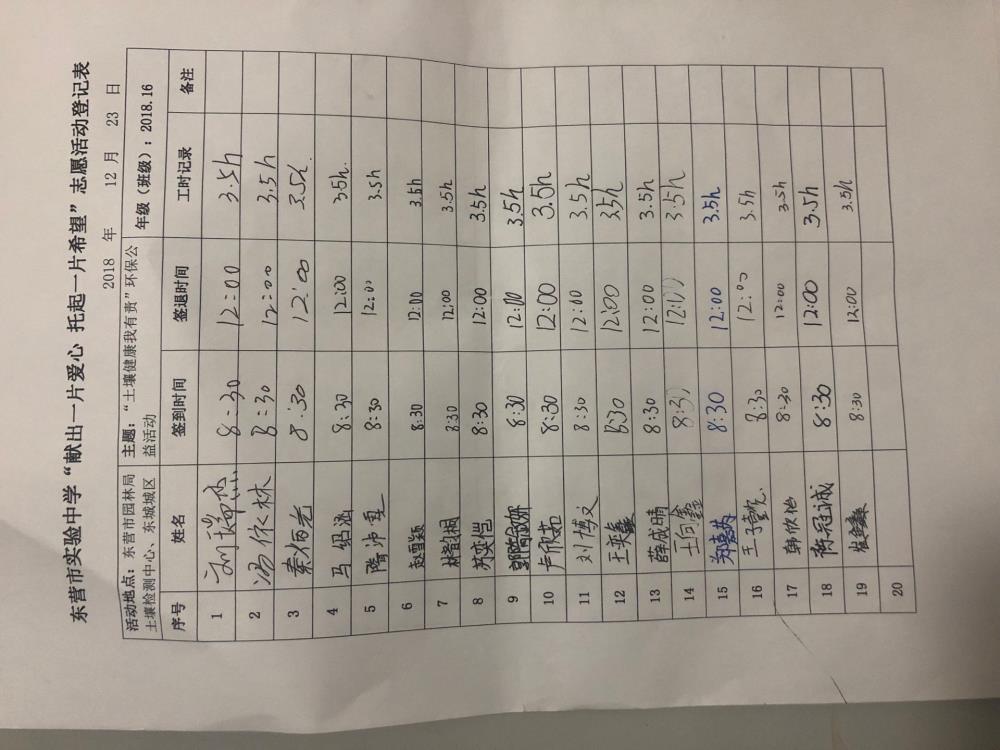 东营市实验中学“献出一片爱心 托起一片希望”志愿活动登记表
2018 年 12 月 23 日
活动地点：东营市园林局土壤检测中心、东城城区 主题：“土壤健康我有责”环保公益活动 年级（班级）：2018.16
序号 姓名 签到时间 签退时间 工时记录 备注
1 8:30 12:00 3.5h
2 汤依林 8:30 12:00 3.5h
3 秦佰光 8:30 12:00 3.5h.
4 马绍涵 8:30 12:00 3.5h.
5 隋沛 8:30 12:00 3.5h
6 赵雪颖 8:30 12:00 3.5h
7 林韵桐 8:30 12:00 3.5h
8 苏奕恺 8:30 12:00 3.5h
9 郭陈姗妍 8:30 12:00 3.5h
10 卢欣茹 8:30 12:00 3.5h
11 刘博文 8:30 12:00 3.5h
12 王奕鑫 8:30 12:00 3.5h
13 薛成晴 8:30 12:00 3.5h
14 王向鑫 8:30 12:00 3.5h
15 郑嘉芮 8:30 12:00 3.5h
16 王子歆 8:30 12:00 3.5h
17 韩欣怡 8:30 12:00 3.5h
18 蒋冠诚 8:30 12:00 3.5h
19 崔鑫 8:30 12:00 3.5h
20